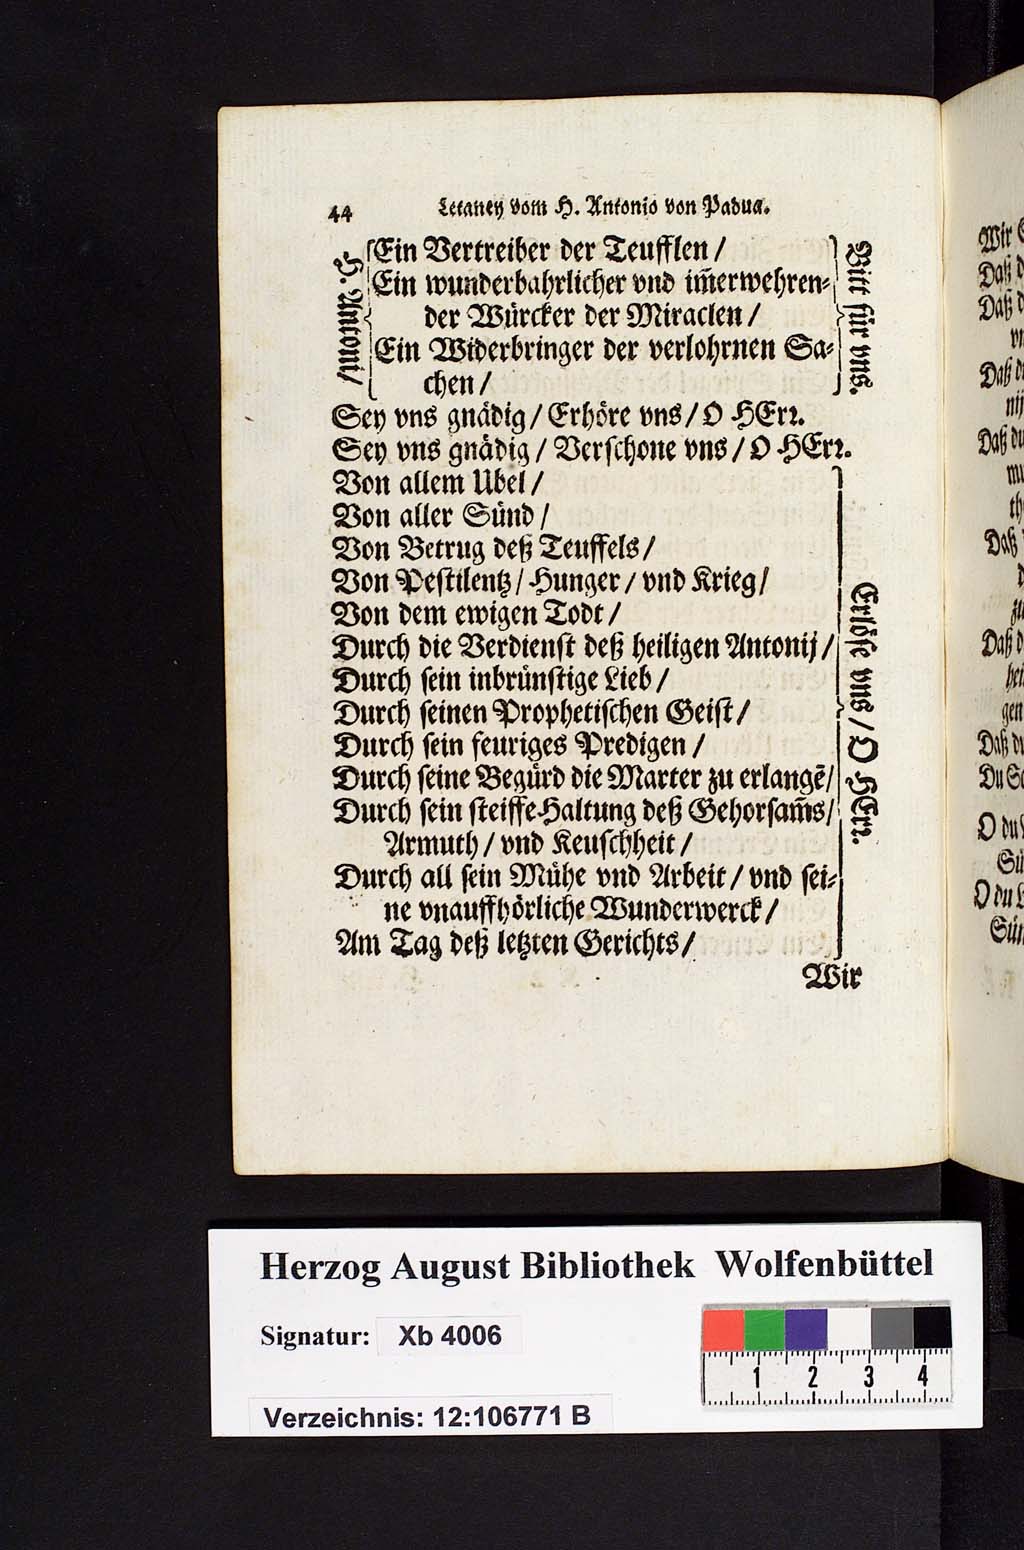 44 Letaney vom H. Antonio von Padua.
H. Antoni/
Ein Vertreiber der Teufflen /
Ein wunderbahrlicher vnd im̄erwehren⸗
der Würcker der Miraclen /
Ein Widerbringer der verlohrnen Sa⸗
chen /
Bitt für vns.
Sey vns gnädig / Erhöre vns / O HErꝛ.
Sey vns gnädig / Verschone vns / O HErꝛ.
Von allem Ubel /
Von aller Sünd /
Von Betrug deß Teuffels /
Von Pestilentz / Hunger / vnd Krieg /
Von dem ewigen Todt /
Durch die Verdienst deß heiligen Antonij /
Durch sein inbrünstige Lieb /
Durch seinen Prophetischen Geist /
Durch sein feuriges Predigen /
Durch seine Begürd die Marter zu erlangē /
Durch sein steiffe Haltung deß Gehorsam̄s /
Armuth / vnd Keuschheit /
Durch all sein Mühe vnd Arbeit / vnd sei⸗
ne vnauffhörliche Wunderwerck /
Am Tag deß letzten Gerichts /
Erlöse vns / O HErꝛ.
Wir
Wir
Daß
Daß
Daß
nij
Daß du
th
Daß
zu
Daß
hei
gen
Daß du
Du
O du
Sü
O du
Sün
Herzog August Bibliothek Wolfenbüttel
Signatur: Xb 4006
1 2 3 4
Verzeichnis: 12:106771 B